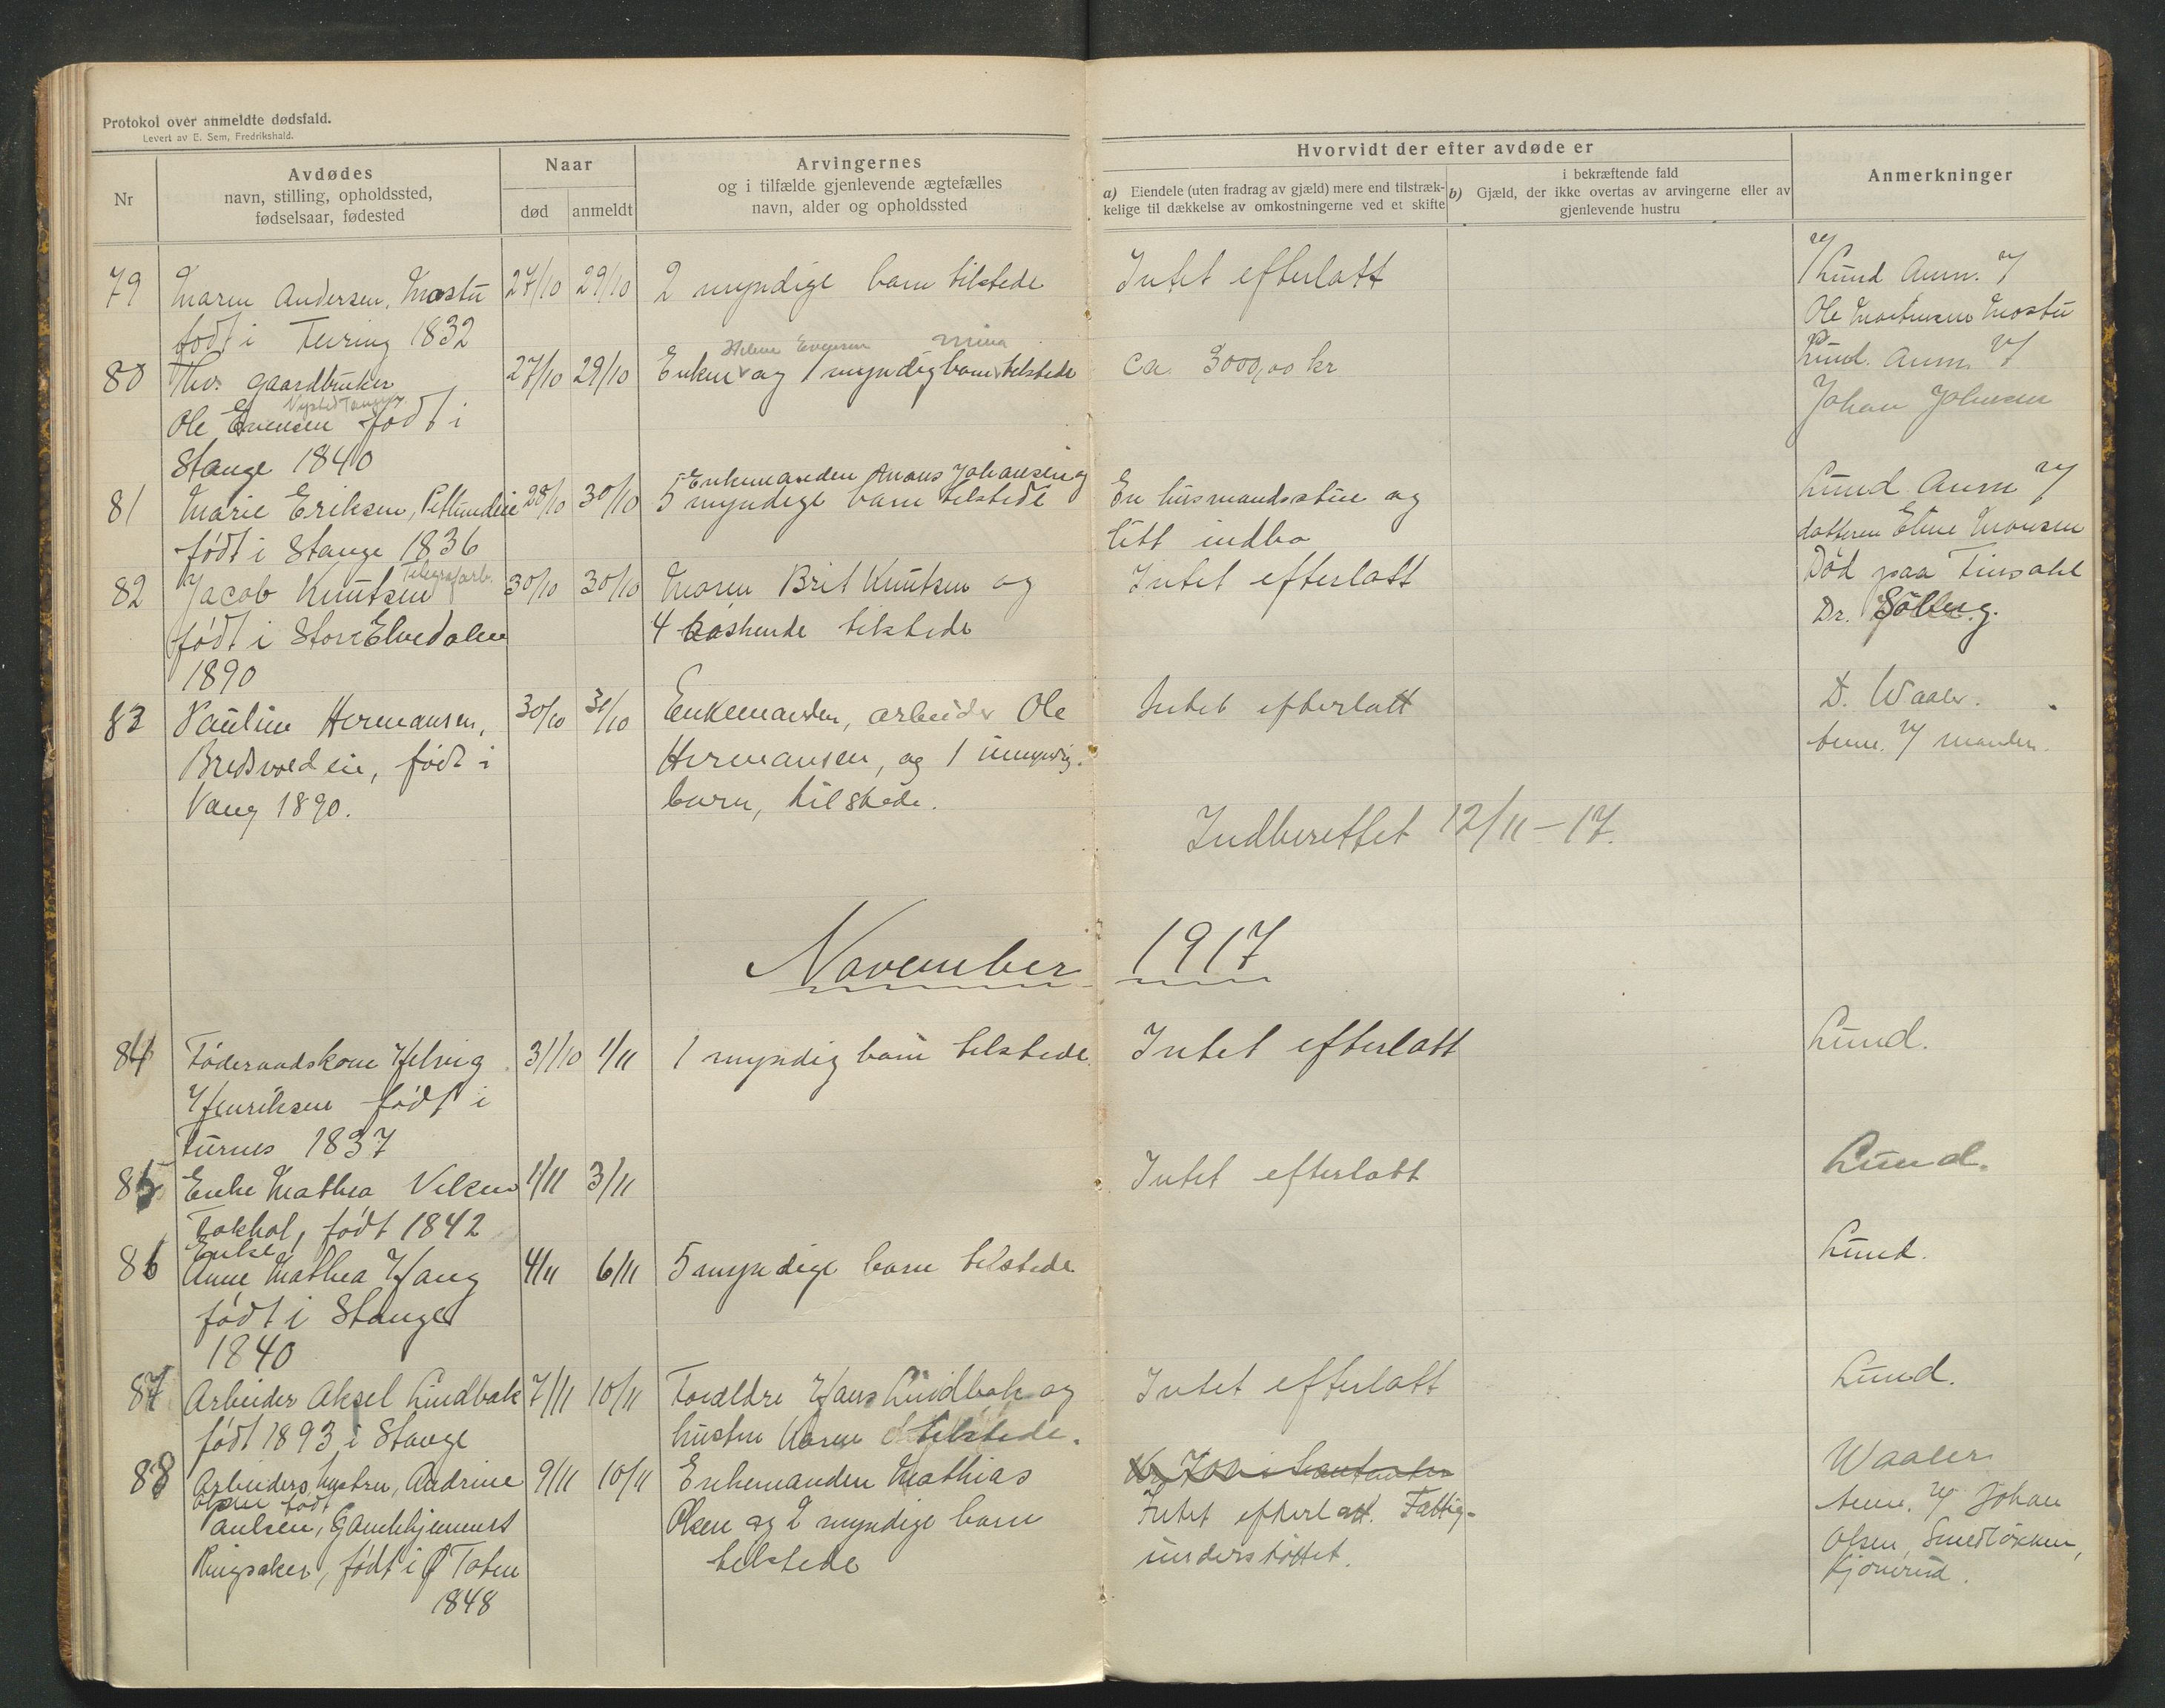 Protokol over anmeldte dødsfald.
Levert av E. Sem, Fredrikshald.
Nr
Avdødes
navn, stilling, opholdssted,
fødselsaar, fødested
Naar
død
anmeldt
Arvingernes
og i tilfælde gjenlevende ægtefælles
navn, alder og opholdssted
Hvorvidt der efter avdøde er
a) Eiendele (uten fradrag av gjæld) mere end tilstræk-
kelige til dækkelse av omkostningerne ved et skifte
i bekræftende fald
b) Gjæld, der ikke overtas av arvingerne eller av
gjenlevende hustru
Anmerkninger
79 Maren Andersen, Mostu 27/10 29/10 2 myndige barn tilstede Intet efterlatt Lund Anm. v/
født i 1832 Ole Mostu
80 gaardbruker 27/10 29/10 Enken og 1 myndig barn tilstede ca. 3000,00 kr Lund. Anm. v/
Helene Evensen Mina
Ole Evensen født i Johan Johnsen
Stange 1840
Enkemanden Johansen og
81 Marie Eriksen, 28/10 30/10 5 myndige barn tilstede En husmandsstue og Lund Anm v/
født i Stange 1836 litt indbo datteren Eline Monsen
82 Jacob Knutsen Telegrafarb. 30/10 30/10 Maren Brit Knutsen og Intet efterlatt Død paa
født i Stor Elvedalen 4 søskende tilstede Dr. Solberg.
1890
83 Pauline Hermansen, 30/10 31/10 Enkemanden, arbeider Ole Intet efterlatt D. Waaler.
Bredsvoldeie, født i Hermansen, og 1 umyndig Anm. v/ manden.
Vang 1890. barn, tilstede.
Indberettet 12/11-17.
November 1917
84 Føderaadskone Helvig 31/10 1/11 1 myndig barn tilstede Intet efterlatt Lund.
Henriksen født i
Furnes 1837
85 Enke Mathea 1/11 3/11 Intet efterlatt Lund.
født 1842
Enke
86 Anne Mathea Haug 4/11 6/11 5 myndige barn tilstede Lund.
født i Stange
1840
87 Arbeider Aksel Lindbak 7/11 10/11 Forældre Hans Lindbak og Intet efterlatt Lund.
født 1893 i Stange hustru Karen tilstede.
88 Arbeiders hustru, Andrine 9/11 10/11 Enkemanden Mathias Waaler
Olsen født
Paulsen, Gamlehjemmet Olsen og 2 myndige barn Intet efterlatt. Fattig- Anm. v/ Johan
Ringsaker, født i Ø Toten tilstede understøttet. Olsen, Smedløkken,
1848 Kjonerud.